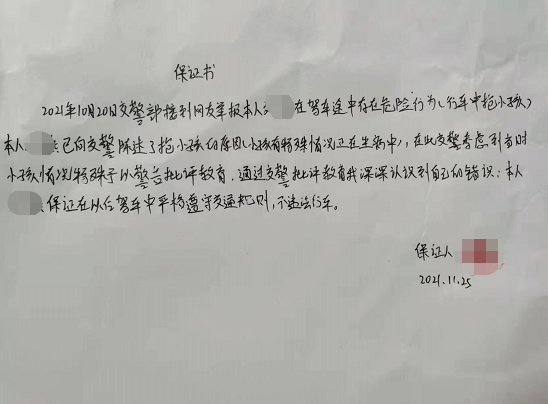 保证书
2021年10月20日交警部接到网友举报本人在驾车途中存在危险行为(行车中抱小孩)
本人已向交警陈述了抱小孩的原因(小孩有特殊情况正在生病中),在此交警考虑到当时
小孩情况特殊予以警告批评教育,通过交警批评教育我深深认识到自己的错误:本人
保证在以后驾车中严格遵守交通规则,不违法行车。
保证人
2021.11.25